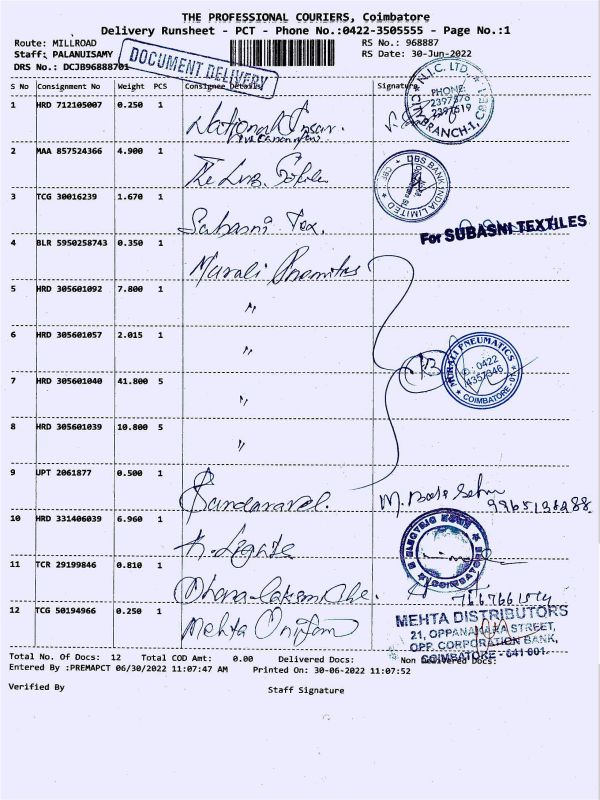 THE PROFESSIONAL COURIERS, Coimbatore
Delivery Runsheet - PCT - Phone No.:0422-3505555 - Page No.:1
Route: MILLROAD RS No.: 968887
Staff: PALANUISAMY RS Date: 30-Jun-2022
DRS No.: DCJB96888701
DOCUMENT DELIVERY
S No Consignment No Weight PCS Consignee Details Signature
1 HRD 712105007 0.250 1 National Insur.
N.I.C. LTD.
PHONE:
2397378
2397519
BRANCH-1, CBE
2 MAA 857524366 4.900 1 The LVB.
DBS BANK INDIA LIMITED
3 TCG 30016239 1.670 1 Sabasni Tex.
For SUBASNI TEXTILES
4 BLR 5950258743 0.350 1 Murali
5 HRD 305601092 7.800 1 "
6 HRD 305601057 2.015 1 "
MURALI PNEUMATICS
0422
4357346
COIMBATORE
7 HRD 305601040 41.800 5 "
8 HRD 305601039 10.800 5 "
9 UPT 2061877 0.500 1 Sundaravel. M.
10 HRD 331406039 6.960 1
ELECTRIC
COIMBATORE
11 TCR 29199846 0.810 1
12 TCG 50194966 0.250 1 Mehta
MEHTA DISTRIBUTORS
21, OPPANAKARA STREET,
OPP. CORPORATION BANK,
COIMBATORE - 641 001.
Total No. Of Docs: 12 Total COD Amt: 0.00 Delivered Docs: Non Delivered Docs:
Entered By :PREMAPCT 06/30/2022 11:07:47 AM Printed On: 30-06-2022 11:07:52
Verified By Staff Signature